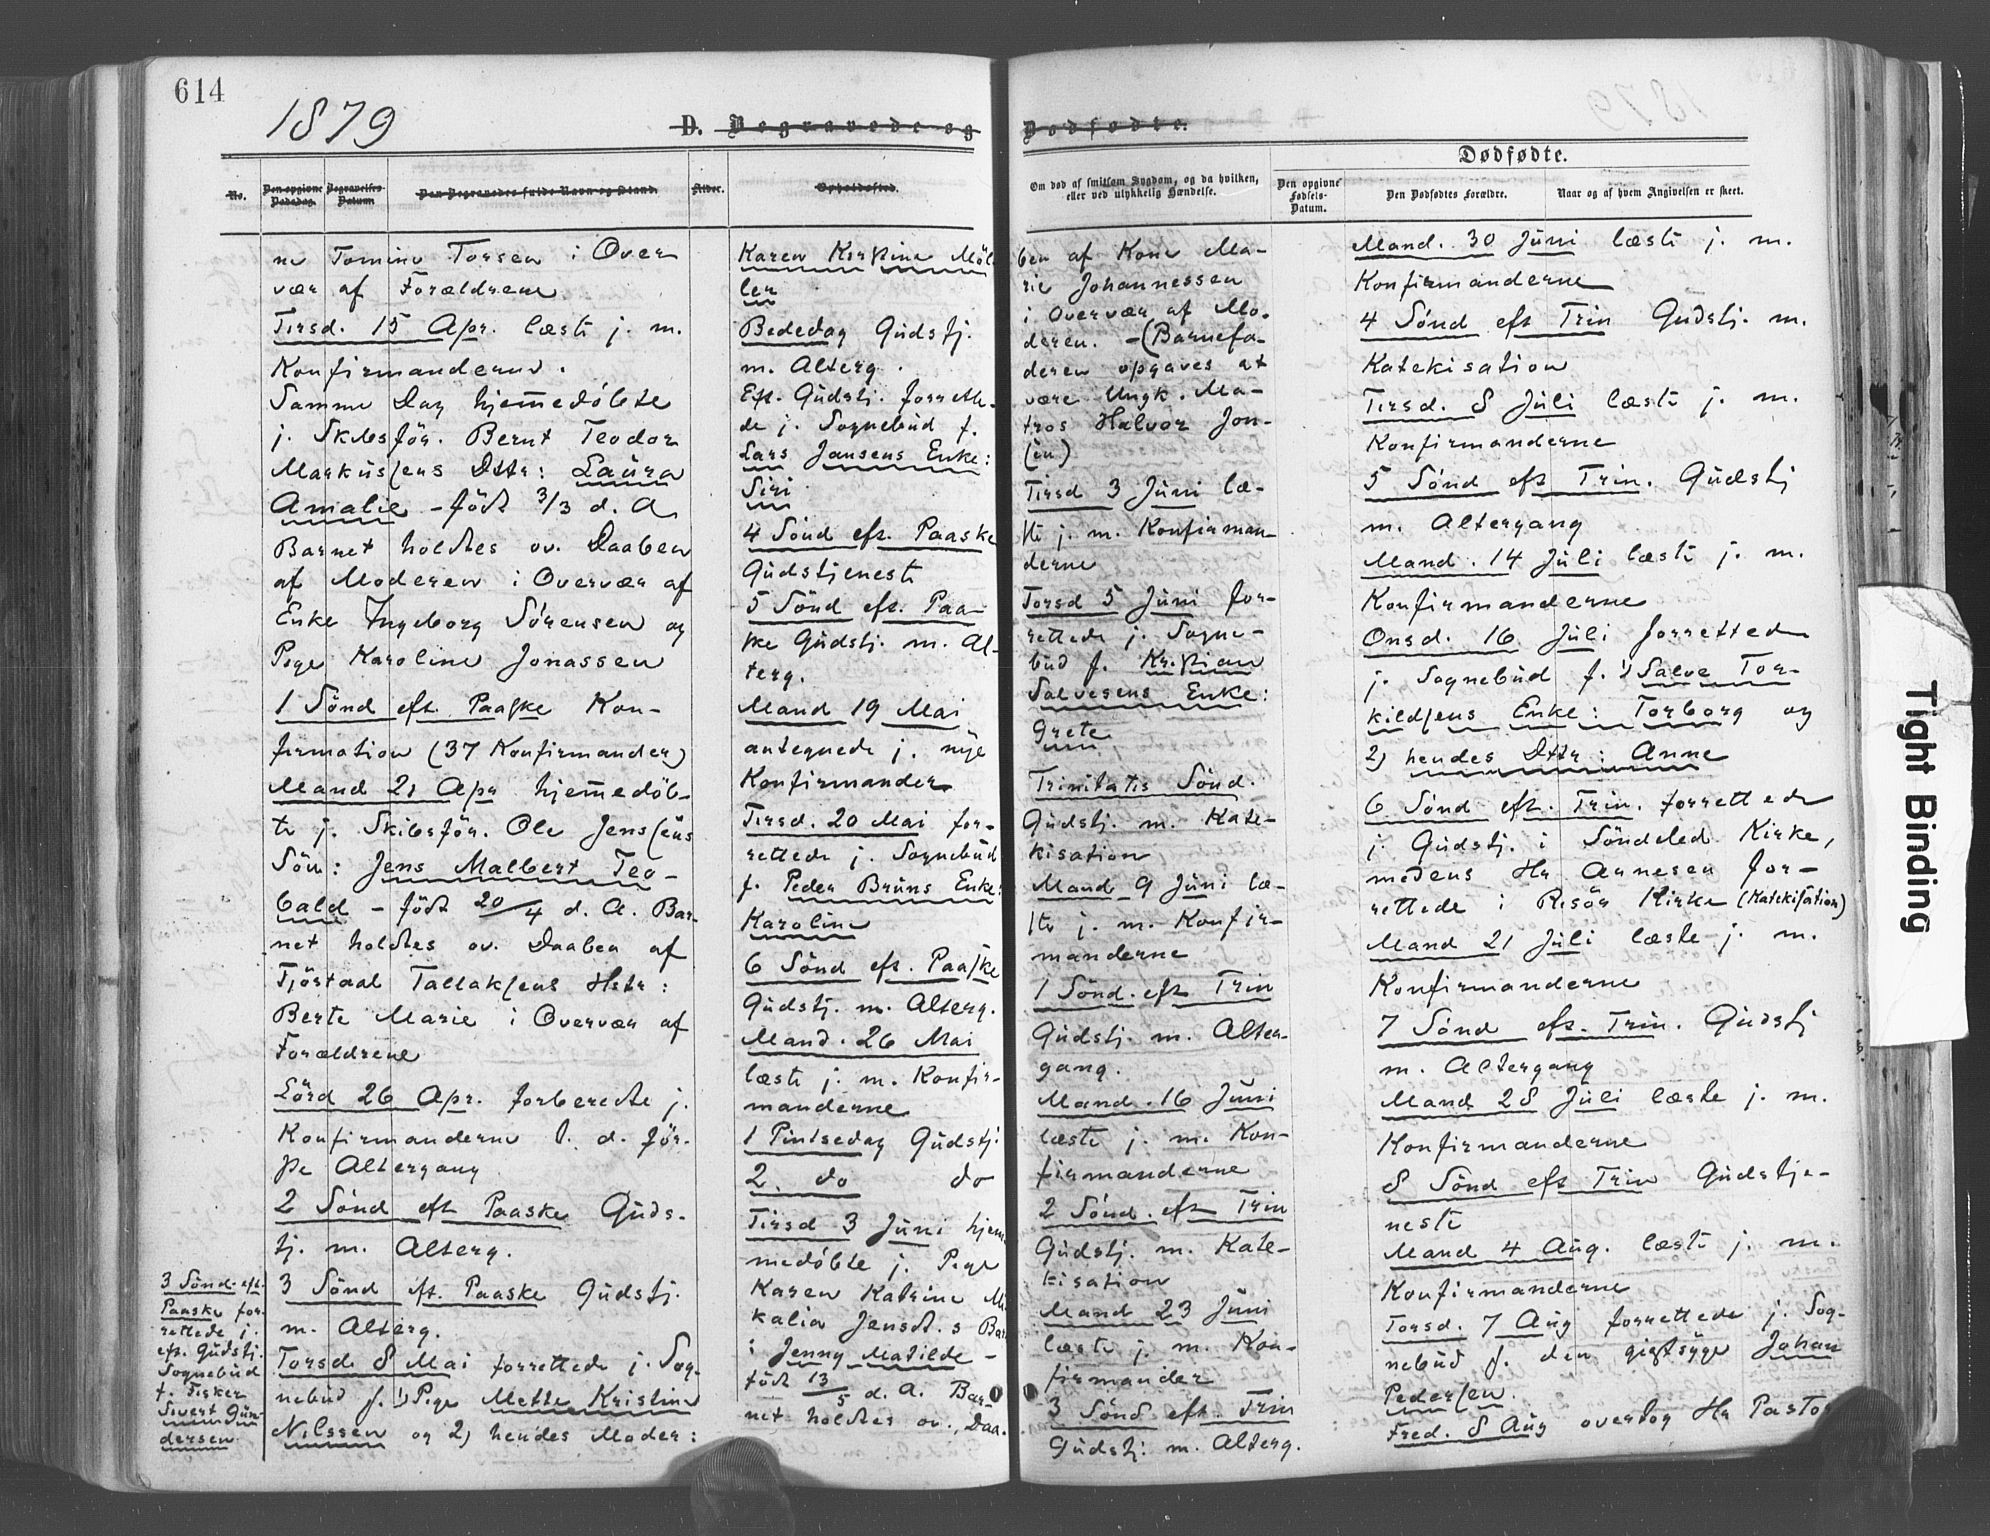 614
1879
D. Begravede og
Dødfødte.
No.
Den opgivne Dødsdag.
Begravelses-Datum
Den Begravedes fulde Navn og Stand.
Alder.
Opholdssted.
Om død af smitsom Sygdom, og da hvilken,
eller ved ulykkelig Hændelse.
Dødfødte.
Den opgivne
Fødsels-
Datum.
Den Dødfødtes Forældre.
Naar og af hvem Angivelsen er skeet.
ne Tomine Torsen i Over
vær af Forældrene
Tirsd. 15 Apr. læste j. m.
Konfirmanderne.
Samme Dag hjemmedøbte
j. Skibsför. Bernt Teodor
Markusſens Dttr: Laura
Amalie – født 3/3 d. A.
Barnet holdtes ov. Daaben
af Moderen i Overvær af
Enke Ingeborg Sörensen og
Pige Karoline Jonassen
1 Sönd eft. Paaſke Kon-
firmation (37 Konfirmander)
Mand 21 Apr hjemmedöb-
te j. Skibsför. Ole Jensſens
Sön: Jens Malbert Teo-
bald – födt 20/4 d. A. Bar-
net holdtes ov. Daaben af
Tjöstaal Tallakſens Hstr:
Berte Marie i Overvær af
Forældrene
Lörd 26 Apr. forberedte j.
Konfirmanderne t. d. för-
ſte Altergang
2 Sönd eft Paaske Guds-
tj. m. Alterg.
3 Sönd eft. Paaske Gudstj.
m. Alterg.
Torsd 8 Mai forrettede j. Sog-
nebud f. 1) Pige Mette Kristine
Nilssen og 2) hendes Moder:
3 Sönd eft.
Paaske for-
rettede j.
eft. Gudstj.
Sognebud
f. Fisker
Sivert Gun
dersen
Karen Kirſtine Möl
ler
Bededag Gudstj.
m. Alterg.
Eft. Gudstj. forrette-
de j. Sognebud f.
Lars Jansens Enke:
Siri
4 Sönd eft. Paaske
Gudstjeneste
5 Sönd eft. Paa-
ſke Gudstj. m. Al-
terg.
Mand 19 Mai
antegnede j. nye
Konfirmander
Tirsd. 20 Mai for-
rettede j. Sognebud
f. Peder Bruns Enke:
Karoline
6 Sönd eft. Paaſke
Gudstj. m. Alterg.
Mand. 26 Mai
læste j. m. Konfir-
manderne
1 Pintsedag Gudstj.
2. do do
Tirsd 3 Juni hjem
medöbte j. Pige
Karen Katrine Mi
kalia Jensdt.s Bar
: Jenny Matilde –
födt 13/5 d. A. Bar-
net holdtes ov. Daa-
ben af Kone Ma-
rie Johannessen
i Overvær af Mo-
deren. – (Barnefa-
deren opgaves at
være Ungk. Ma-
tros Halvor Jon-
ſen)
Tirsd 3 Juni læ-
ſte j. m. Konfirman-
derne
Torsd 5 Juni for-
rettede j. Sogne-
bud f. Kriſtian
Salvesens Enke:
Grete
Trinitatis Sönd.
Gudstj. m. Kate-
kisation
Mand 9 Juni læ-
ſte j. m. Konfir-
manderne
1 Sönd. eft Trin
Gudstj. m. Alter-
gang.
Mand. 16 Juni
læste j. m. Kon-
firmanderne
2 Sönd. eft Trin
Gudstj. m. Kate-
kisation
Mand 23 Juni
læste j. m. Kon-
firmander
3 Sönd eft. Trin
Gudstj. m. Alterg.
Mand. 30 Juni læste j. m.
Konfirmanderne
4 Sönd eft Trin Gudstj. m.
Katekisation
Tirsd. 8 Juli læste j. m.
Konfirmanderne
5 Sönd eft Trin. Gudstj
m. Altergang
Mand. 14 Juli læste j. m.
Konfirmanderne
Onsd. 16 Juli forrettede
j. Sognebud f. 1) Salve Tor-
kildſens Enke: Torborg og
2) hendes Dttr: Anne
6 Sönd eft. Trin. forrettede
j. Gudstj. i Söndeled Kirke,
medens Hr Arnesen for-
rettede i Risör Kirke (Katekiſation)
Mand 21 Juli læste j. m.
Konfirmanderne
7 Sönd eft. Trin. Gudstj
m. Altergang
Mand 28 Juli læste j. m.
Konfirmanderne
8 Sönd eft Trin Gudstje-
neste
Mand 4 Aug. læste j. m.
Konfirmanderne
Torsd. 7 Aug forrettede j. Sog-
nebud f. den gigtsyge Johan
Pederſen.
Fred. 8 Aug overtog Hr Pastor
Tight Binding